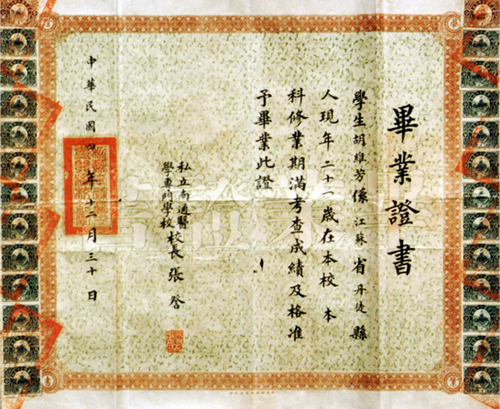 畢業證書
學生胡維芳係江蘇省丹徒縣
人現年二十一歲在本校本
科修業期滿考查成績及格准
予畢業此證
私立南通醫
學專門學校校長張詧
中華民國四年十二月三十日